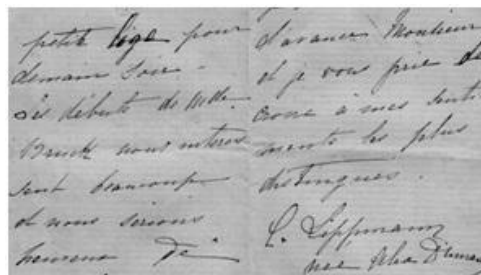 petit loge pour
demain soir -
Les débuts de Mlle
Bruck nous intéres
sent beaucoup
et nous serions
heureux de
d'avance Monsieur
et je vous prie de
croire à mes senti
ments les plus
distingués.
C. Lippmann
née Dumas